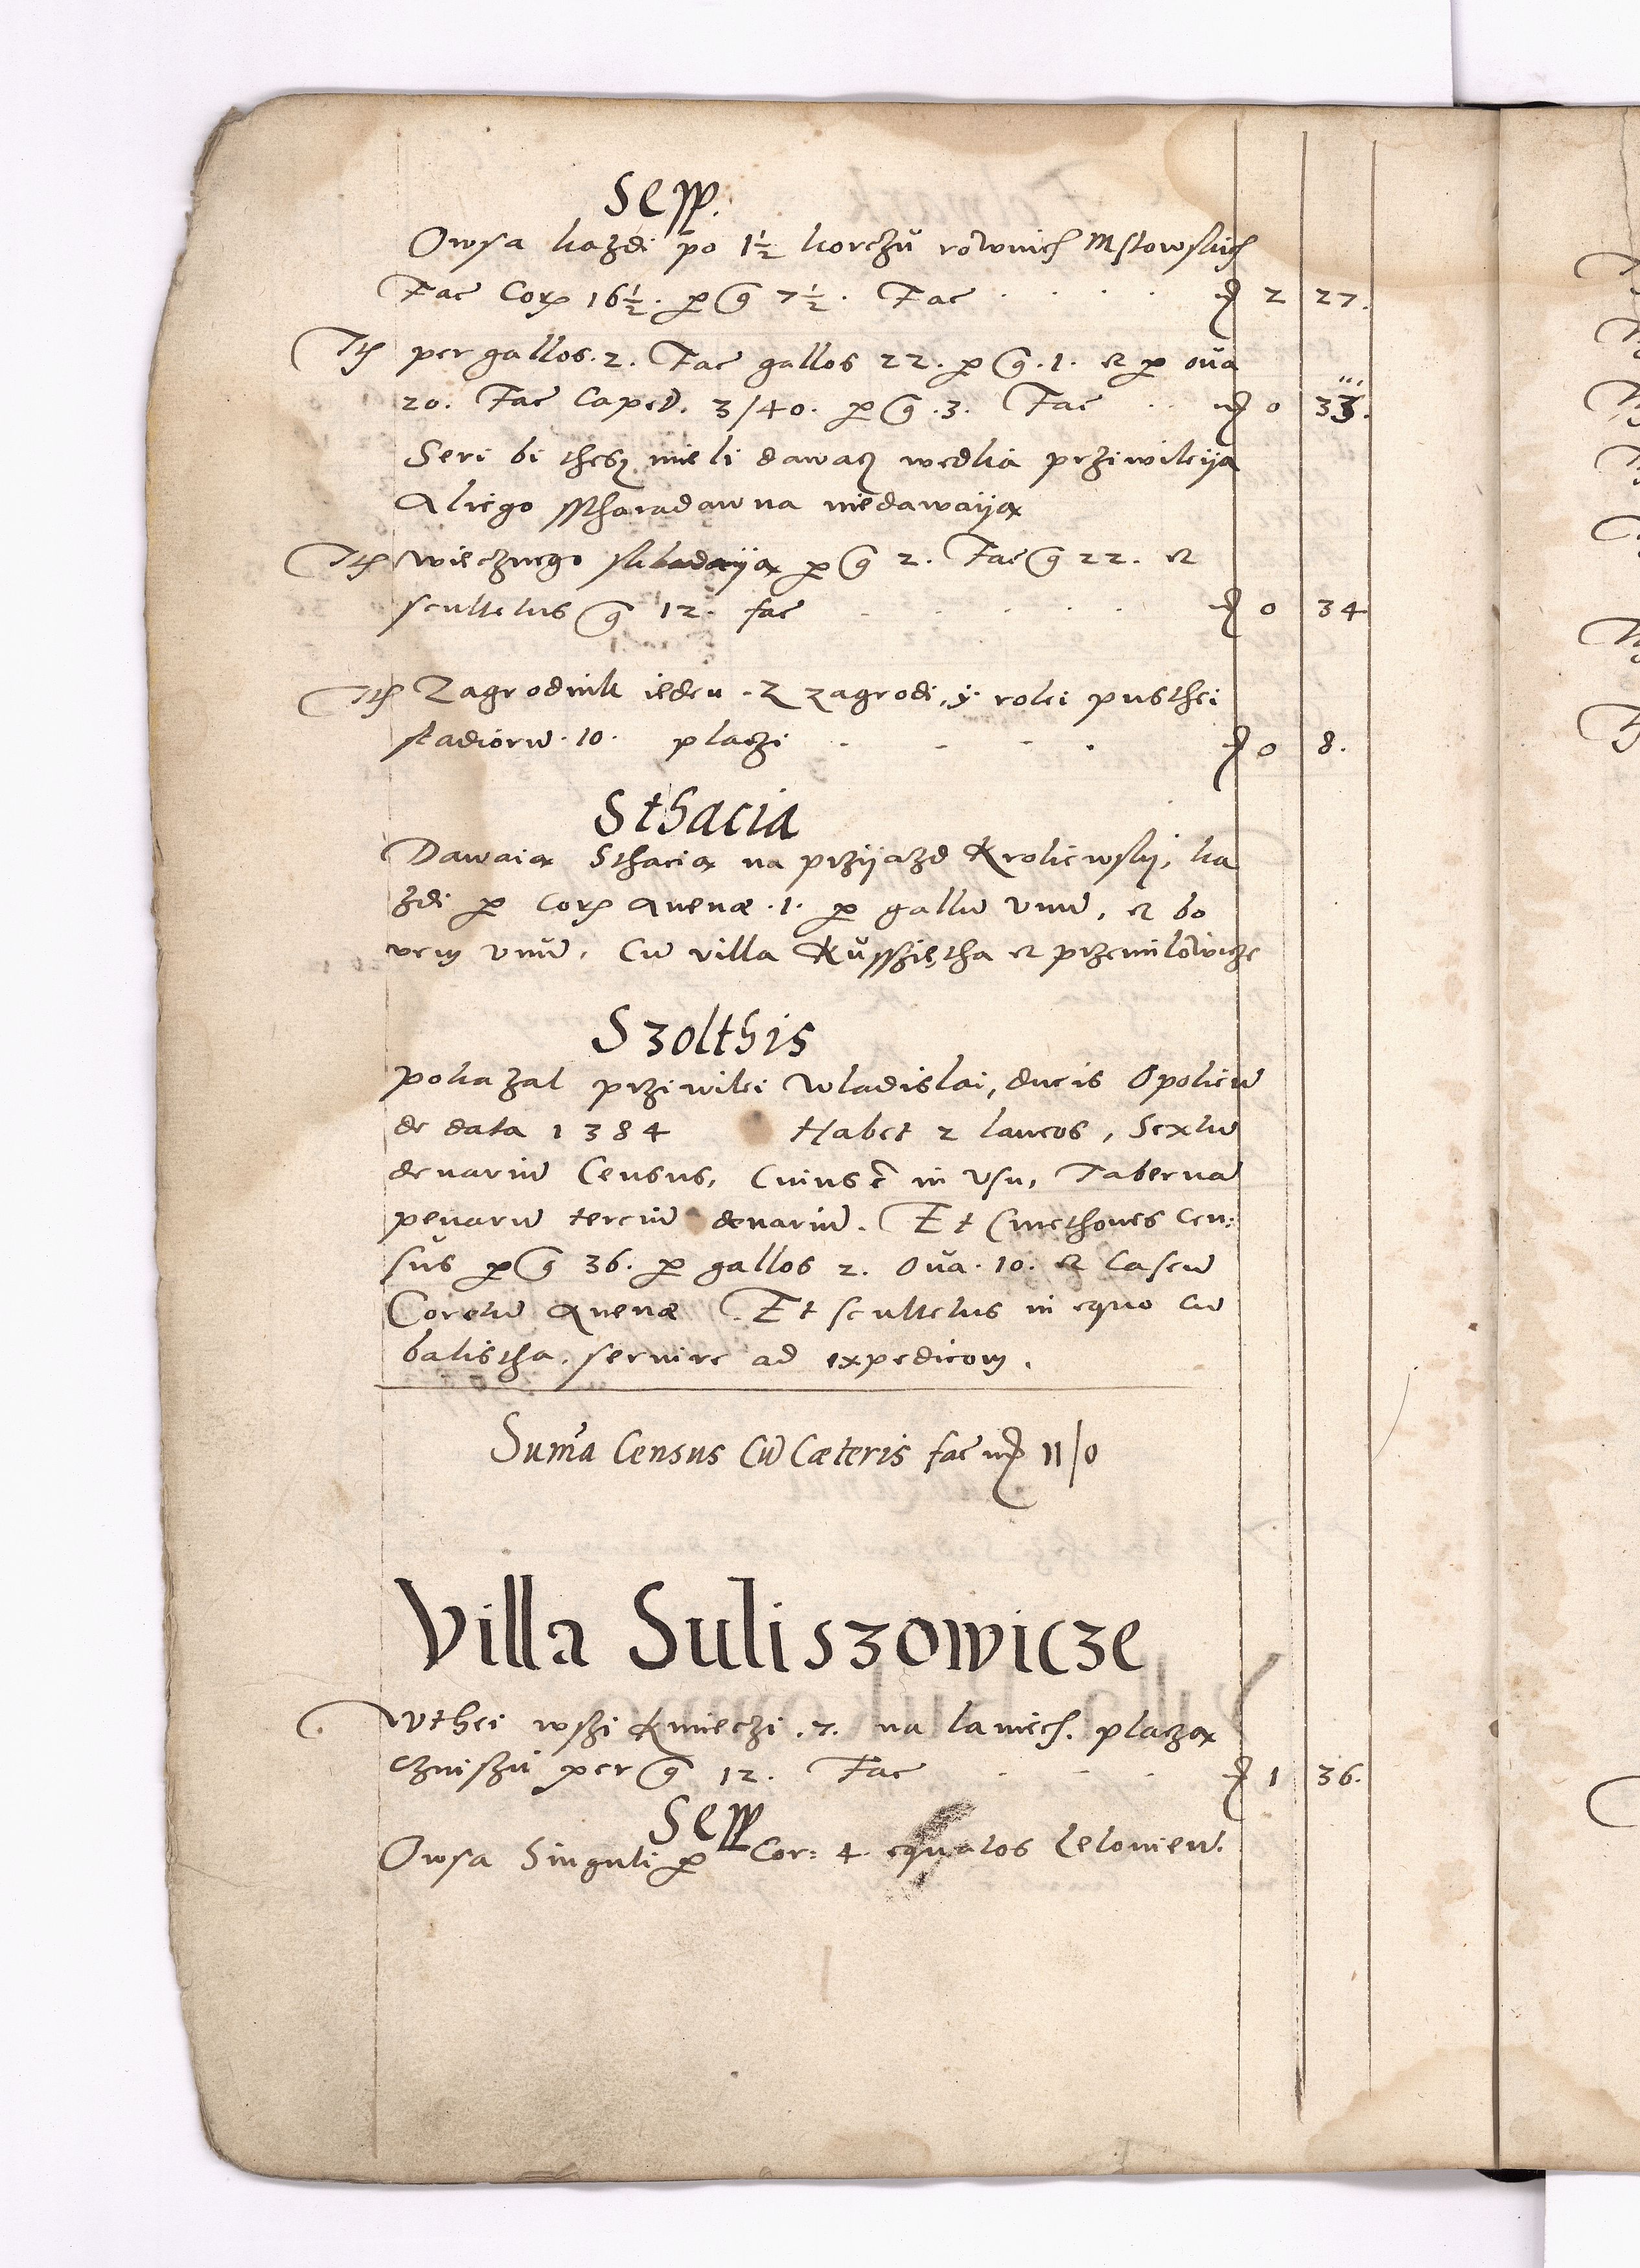 Sepp.
Owsa kazdi po 1½ korczu rownich Mstowskich
Fac Cor 16½. per g 7½. Fac . . . . mr 2 27.
Itm per gallos. 2. Fac gallos 22. per g. 1. et per oua
20. Fac Caped. 3/40. per g. 3. Fac . . mr 0 33.
Seri bi thesz mieli dawacz wedlia prziwileija
Aliego isstharadawna niedawaija
Itm wiecznego skladaija per g 2. Fac g 22. et
scultetus g 12. fac . . . . . mr 0 34
Itm Zagrodnik ieden. Z zagrodi, y. rolei pusthei
stadioru. 10. placzi . . . . mr 0 8.
Sthacia
Dawaia Sthacia na przijazd Kroliewskj, ka
zdi per Cor Auenæ. 1. per gallu vnu, et bo
vem vnu. Cu villa Kusszietha et przemilowicze
Szolthis
pokazal prziwilei Wladislai, ducis Opolieu
de data 1384 Habet 2 laneos, Sextu
denariu Census, Cuius e in vsu, Taberna
penaru terciu denariu. Et Cmethones Cen:
sus per g 36. per gallos 2. Oua. 10. et Caseu
Coretu Auenæ. Et scultetus in equo cu
balistha. seruire ad expedicom.
Suma Census Cu Cæteris fac mr 11/0
Villa Suliszowicze
Wthei wszi Kmieczi. 7. na laniech. placza
czinszu per g 12. Fac . . . mr 1 36.
Sepp
Owsa Singuli per Cor: 4. equalos Leloniew.